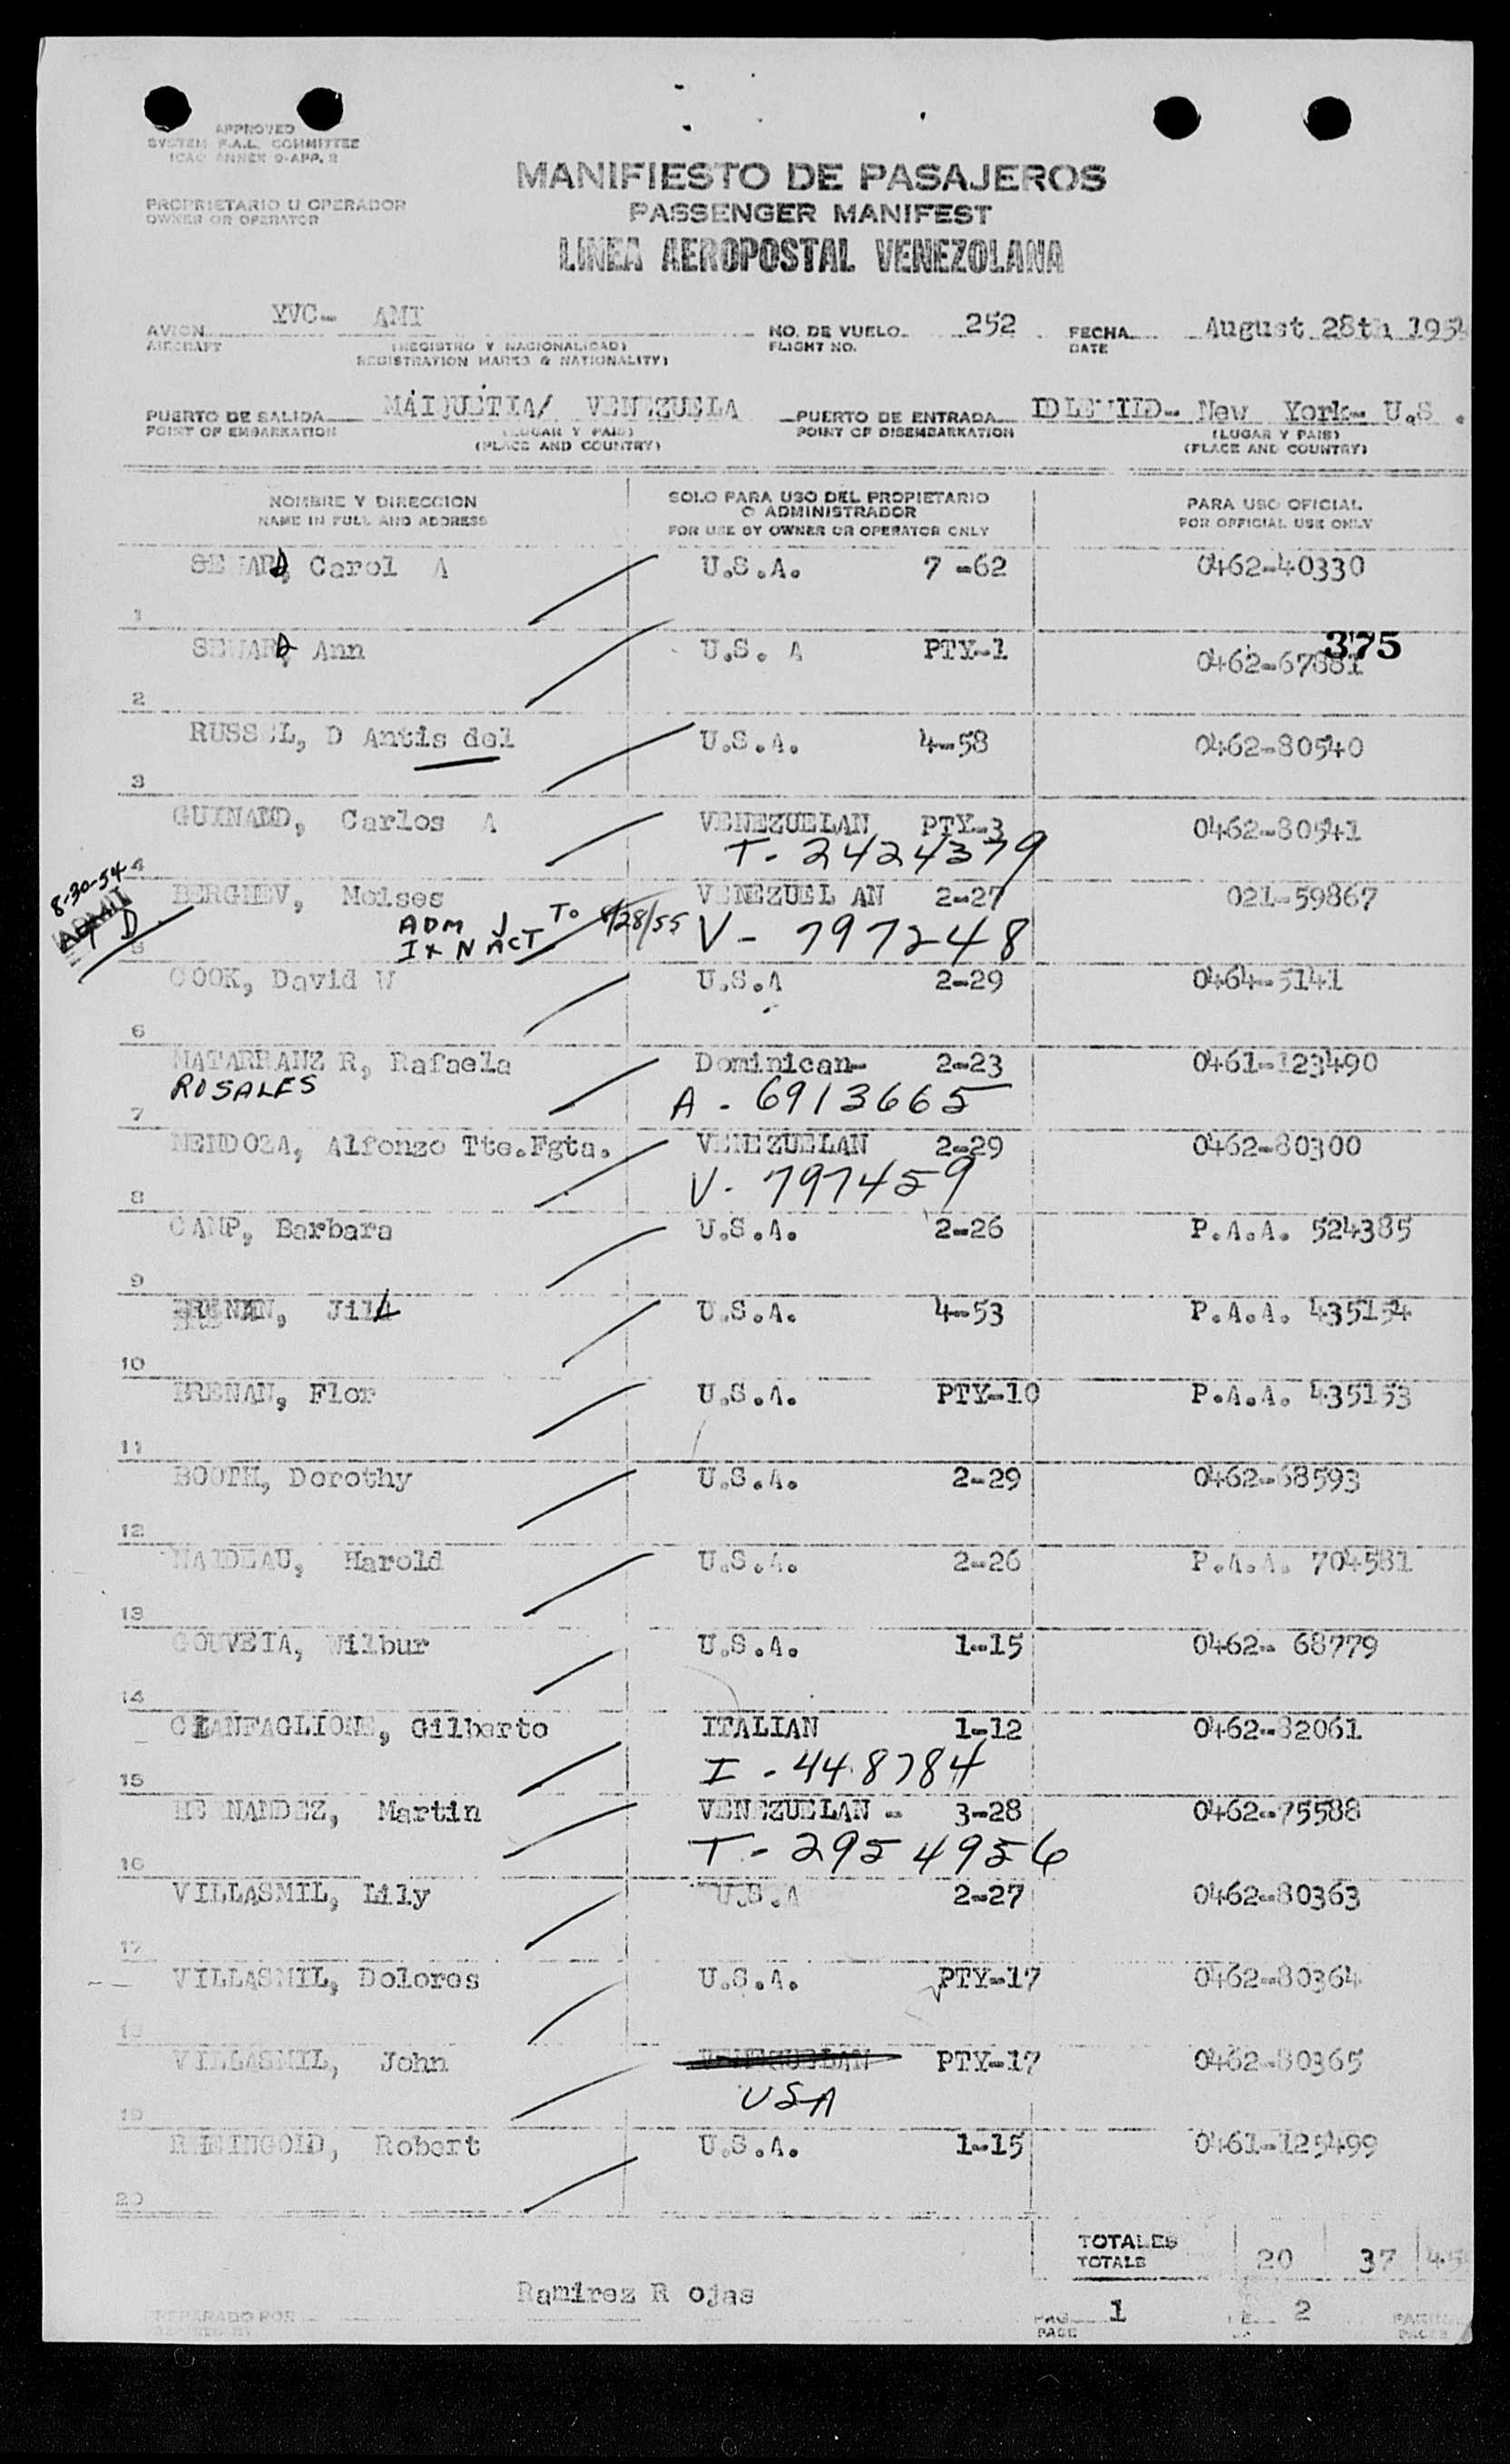 APPROVED
SYSTEM F.A.L. COMMITTEE
ICAO ANNEX 9-APP. 2
MANIFIESTO DE PASAJEROS
PROPRIETARIO U OPERADOR
OWNER OR OPERATOR
PASSENGER MANIFEST
LINEA AEROPOSTAL VENEZOLANA
AVION YVC- AMI NO. DE VUELO 252 FECHA August 28th 195
AIRCRAFT (REGISTRO Y NACIONALIDAD) FLIGHT NO. DATE
REGISTRATION MARKS & NATIONALITY)
PUERTO DE SALIDA MAIQUETIA/ VENEZUELA PUERTO DE ENTRADA IDLEWILD- New York- U.S .
POINT OF EMBARKATION (LUGAR Y PAIS) POINT OF DISEMBARKATION (LUGAR Y PAIS)
(PLACE AND COUNTRY) (PLACE AND COUNTRY)
NOMBRE Y DIRECCION SOLO PARA USO DEL PROPIETARIO PARA USO OFICIAL
O ADMINISTRADOR
NAME IN FULL AND ADDRESS FOR USE BY OWNER OR OPERATOR ONLY FOR OFFICIAL USE ONLY
SEWARD, Carol A U.S.A. 7 -62 0462-40330
1
375
SEWARD, Ann U.S. A PTY-1 0462-67881
2
RUSSEL, D Antis del U.S.A. 4-58 0462-80540
3
GUINAND, Carlos A VENEZUELAN PTY-3 0462-80541
T- 2424379
4
8-30-54
ADMIT
BERGHEV, Moises VENEZUEL AN 2-27 021-59867
ADM J To 8/28/55 V- 797248
I & N ACT
5
COOK, David W U.S.A 2-29 0464-5141
6
MATARRANZ R, Rafaela Dominican- 2-23 0461-123490
ROSALES A - 6913665
7
MENDOZA, Alfonzo Tte.Fgta. VENEZUELAN 2-29 0462-80300
V- 797459
8
CAMP, Barbara U.S.A. 2-26 P.A.A. 524385
9
BRENAN, Jill U.S.A. 4-53 P.A.A. 435154
10
BRENAN, Flor U.S.A. PTY-10 P.A.A. 435153
11
BOOTH, Dorothy U.S.A. 2-29 0462-68593
12
NAIDEAU, Harold U.S.A. 2-26 P.A.A. 704581
13
GOUVEIA, Wilbur U.S.A. 1-15 0462- 68779
14
CIANFAGLIONE, Gilberto ITALIAN 1-12 0462-82061
I - 448784
15
HERNANDEZ, Martin VENEZUELAN - 3-28 0462-75588
T- 2954956
16
VILLASMIL, Lily U.S.A 2-27 0462-80363
17
VILLASMIL, Dolores U.S.A. PTY-17 0462-80364
18
VILLASMIL, John VENEZUELAN PTY-17 0462-80365
USA
19
RHEINGOLD, Robert U.S.A. 1-15 0461-125499
20
TOTALES
TOTALS 20 37
Ramirez R ojas
PREPARADO POR PAG. 1 DE 2
PAGE